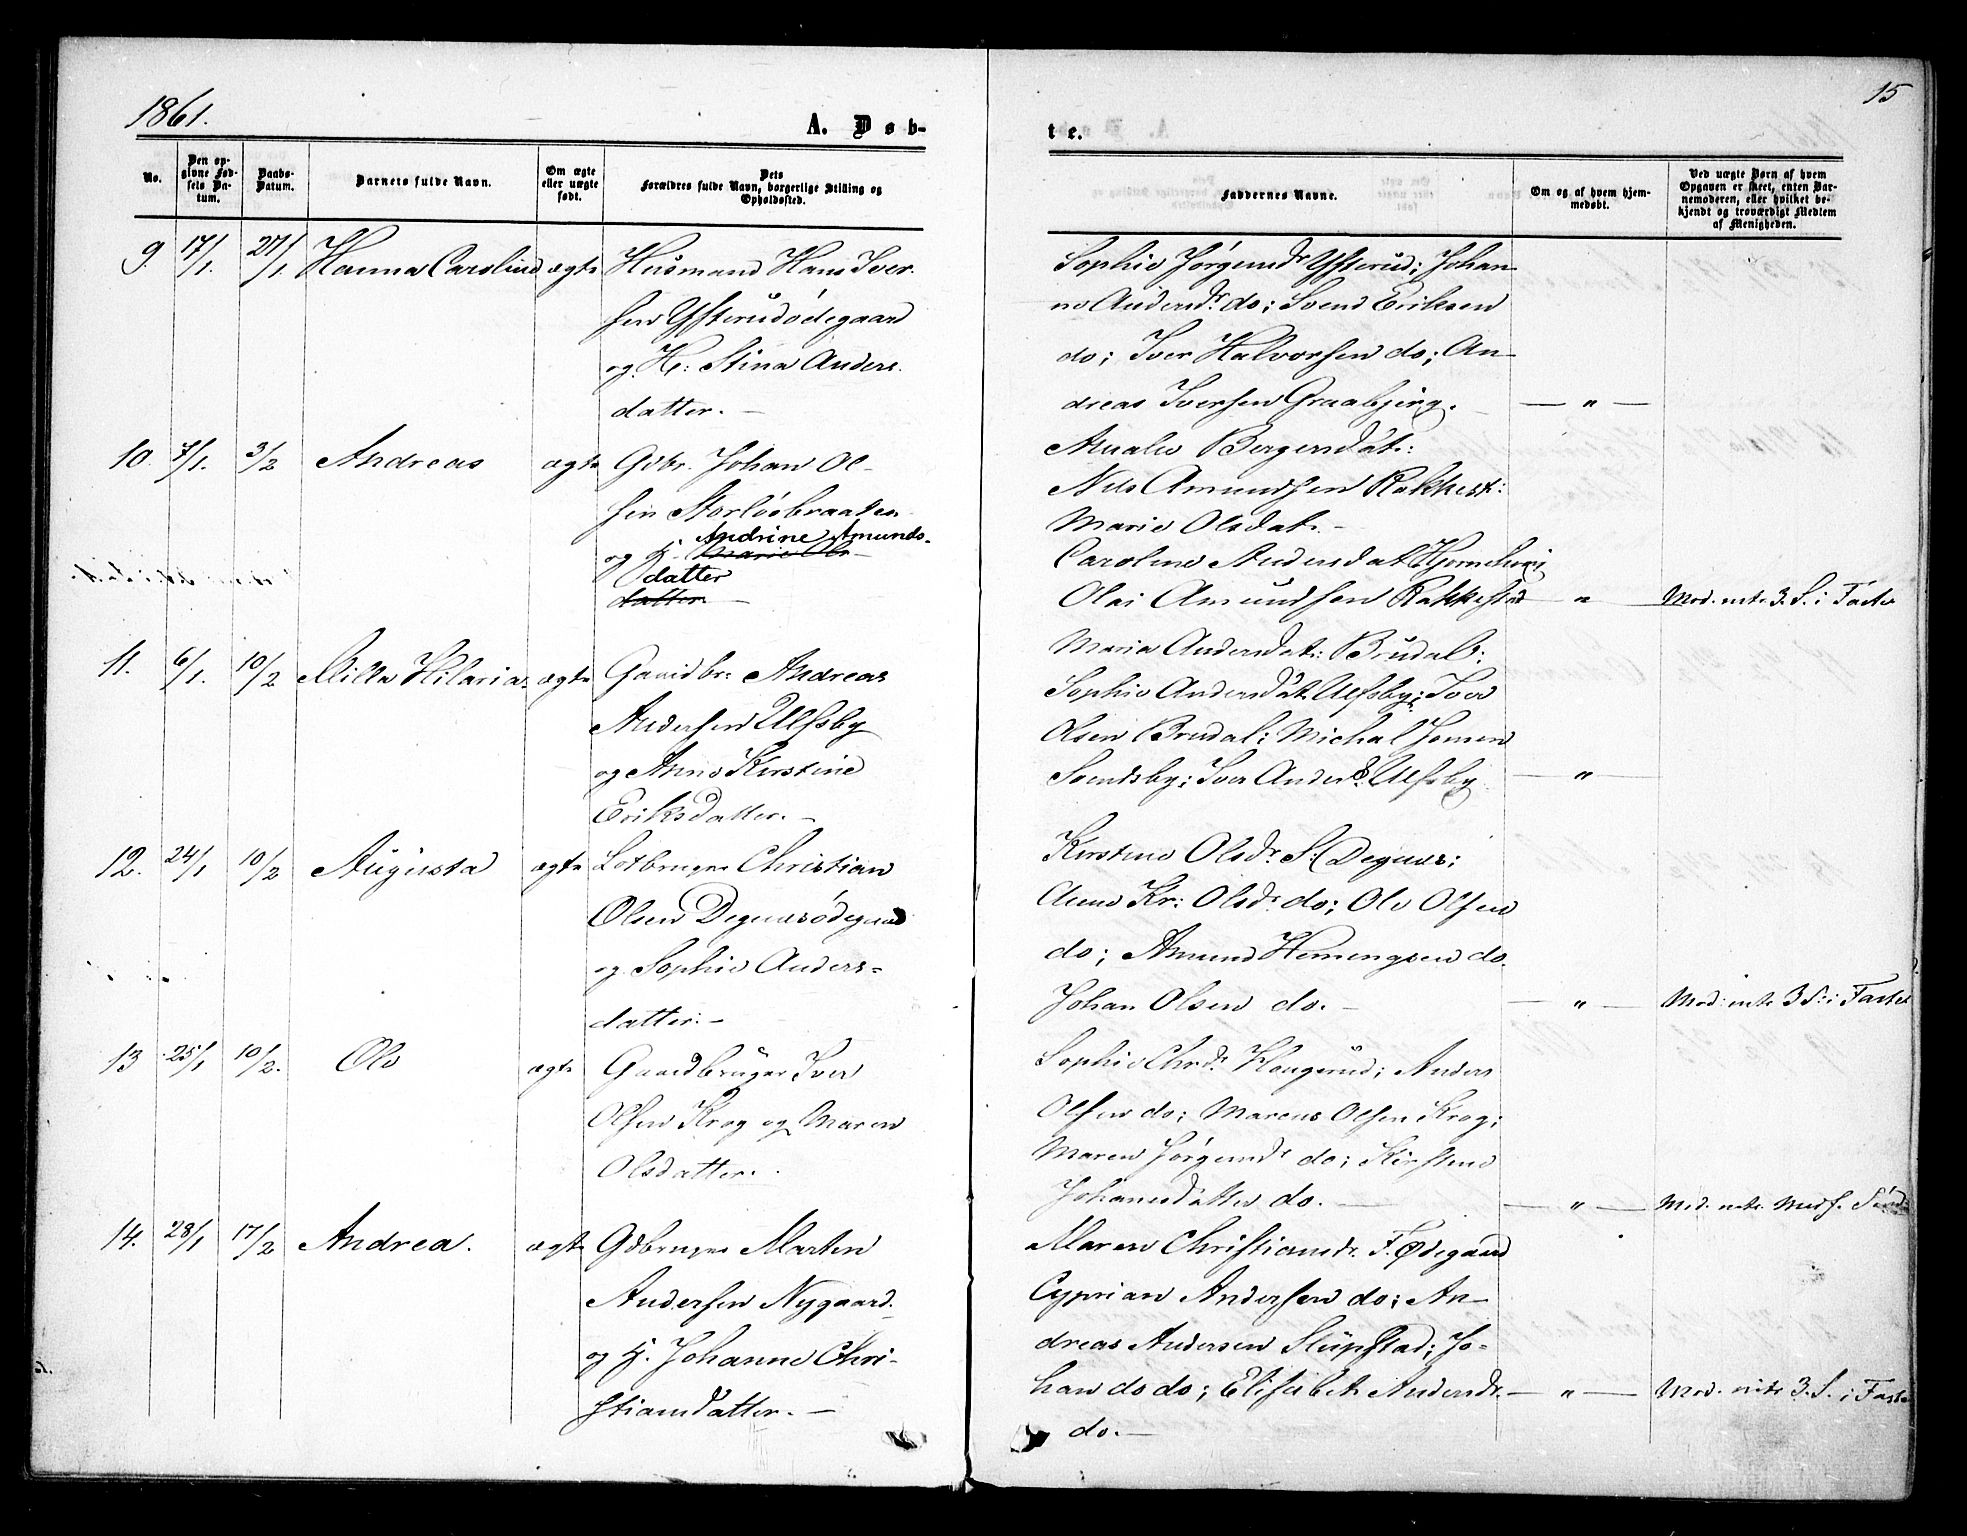 1861.
15
A. Døb-
te.
No.
Den op-
givne Fød-
sels Da-
tum.
Daabs-
Datum.
Barnets fulde Navn.
Om ægte
eller uægte
født.
Dets
Forældres fulde Navn, borgerlige Stilling og
Opholdssted.
Faddernes Navne.
Om og af hvem hjem-
medøbt.
Ved uægte Børn af hvem
Opgaven er skeet, enten Bar-
nemoderen, eller hvilket be-
kjendt og troværdigt Medlem
af Menigheden.
9. 17/1. 27/1 Hanna Caroline ægte Husmand Hans Iver-
sen Ysterudødegaard
og H: Stina Anders-
datter. —
Sophie Jørgensdr Ysterud; Johan-
ne Andersdr. do; Svend Eriksen
do; Iver Halvorsen do; An-
dreas Iversen Graabjerg. — " —
10. 7/1. 3/2 Andreas ægte Gdbr. Johan Ol-
sen Storløsbraaten
og H. Andrine Amunds-
datter
datter. —
Amalie Bergersdat:
Nils Amundsen Rakkest:
Marie Olsdat. —
Caroline Andersdat
Olai Amundsen Rakkestad — " — Mod. intr. 3. S. i Faste
11. 6/1. 10/2 Milla Hilaria. ægte Gaardbr: Andreas
Andersen Ulfsby
og Anne Kirstine
Eriksdatter. —
Maria Andersdat: Brudal;
Sophie Andersdat Ulfsby; Iver
Olsen Brudal; Michal Jensen
Svendsby; Iver Anders. Ulfsby — " —
12. 24/1 10/2 Augusta ægte Lodbruger Christian
Olsen Degnesødegaard
og Sophie Anders-
datter. —
Kirstine Olsdr. S: Degnes;
Anne Kr: Olsdr. do; Ole Olsen
do; Amund Hemingsen do.
Johan Olsen do. — — " — Mod: intr. 3 S: i Faste
13 25/1 10/2. Ole ægte Gaardbruger Iver
Olsen Krog og Maren
Olsdatter.
Sophie Chrdr. Haugerud; Anders
Olsen do; Marcus Olsen Krog;
Maren Jørgensdr do; Kirstine
Johannsdatter do. — — " — Mod. intr.
14. 28/1 17/2 Andrea. ægte Gdbruger Marten
Andersen Nygaard.
og H. Johanne Chri-
stiansdatter. —
Maren Christiansdr. F. Ødegaard
Cyprian Andersen do; An-
dreas Andersen Slupstad; Jo-
han do do; Elisabeth Andersdr. — " — Mod. intr. 3. S. i Faste
do. —